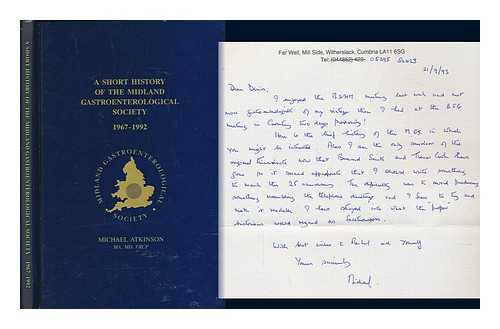 A SHORT HISTORY OF THE MIDLAND GASTROENTEROLOGICAL SOCIETY 1967-1992
A SHORT HISTORY
OF THE MIDLAND
GASTROENTEROLOGICAL
SOCIETY
1967-1992
MIDLAND GASTROENTEROLOGICAL
SOCIETY
MICHAEL ATKINSON
MA, MD, FRCP
Far Well, Mill Side, Witherslack, Cumbria LA11 6SG
Tel: (044852) 423
21/9/93
Dear Denis,
I enjoyed the meeting last week and met
more gastroenterologists of my vintage than I had at the BSG
meeting in Coventry two days previously!
Here is the brief history of the MGS in which
you might be interested. Also I am the only survivor of the
original and Trevor Cooke have
gone so it seemed appropriate that I should write something
to mark the 25 anniversary. The difficulty was to avoid producing
something resembling the telephone directory and I fear to try and
make it readable I have strayed into what the proper
historians would regard as
With best wishes to Rachel and yourself
Yours sincerely
Michael